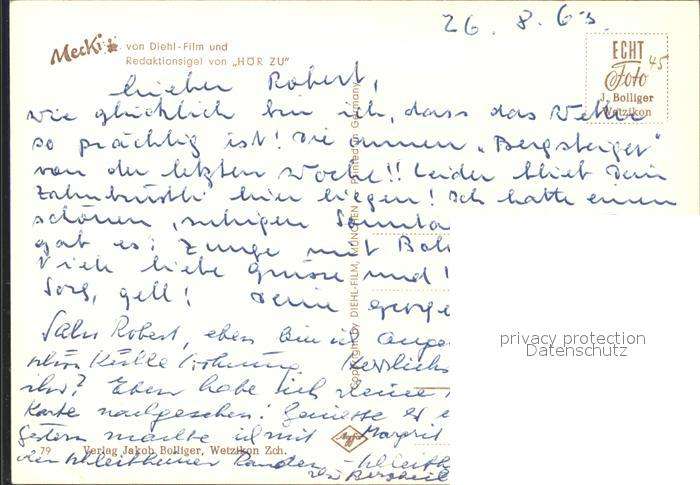 26. 8. 63.
Mecki von Diehl-Film und
Redaktionsigel von „HÖR ZU"
ECHT
Foto
45
J. Bolliger
Wetzikon
Lieber Robert,
wie glücklich bin ich, dass das Wetter
so prächtig ist! Die armen „Bergsteiger"
von der letzten Woche!! Leider blieb Dein
Zahnbürstli hier liegen! Ich hatte einen
schönen, ruhigen Sonnta
gab es: Zunge mit Boh
Viele liebe Grüsse und
Sorg, gell! Deine
Copyright by DIEHL-FILM, MÜNCHEN Printed in Germany
Salu Robert, eben bin ich
schön Kühle Wohnung. Herzlich
ihr? Eben habe ich Deine
Karte nachgesehen! Geniesse es
Gestern machte ich mit Margrit
den Schleitheimer Randen - Schleith
privacy protection
Datenschutz
Agfa
79 Verlag Jakob Bolliger, Wetzikon Zch.